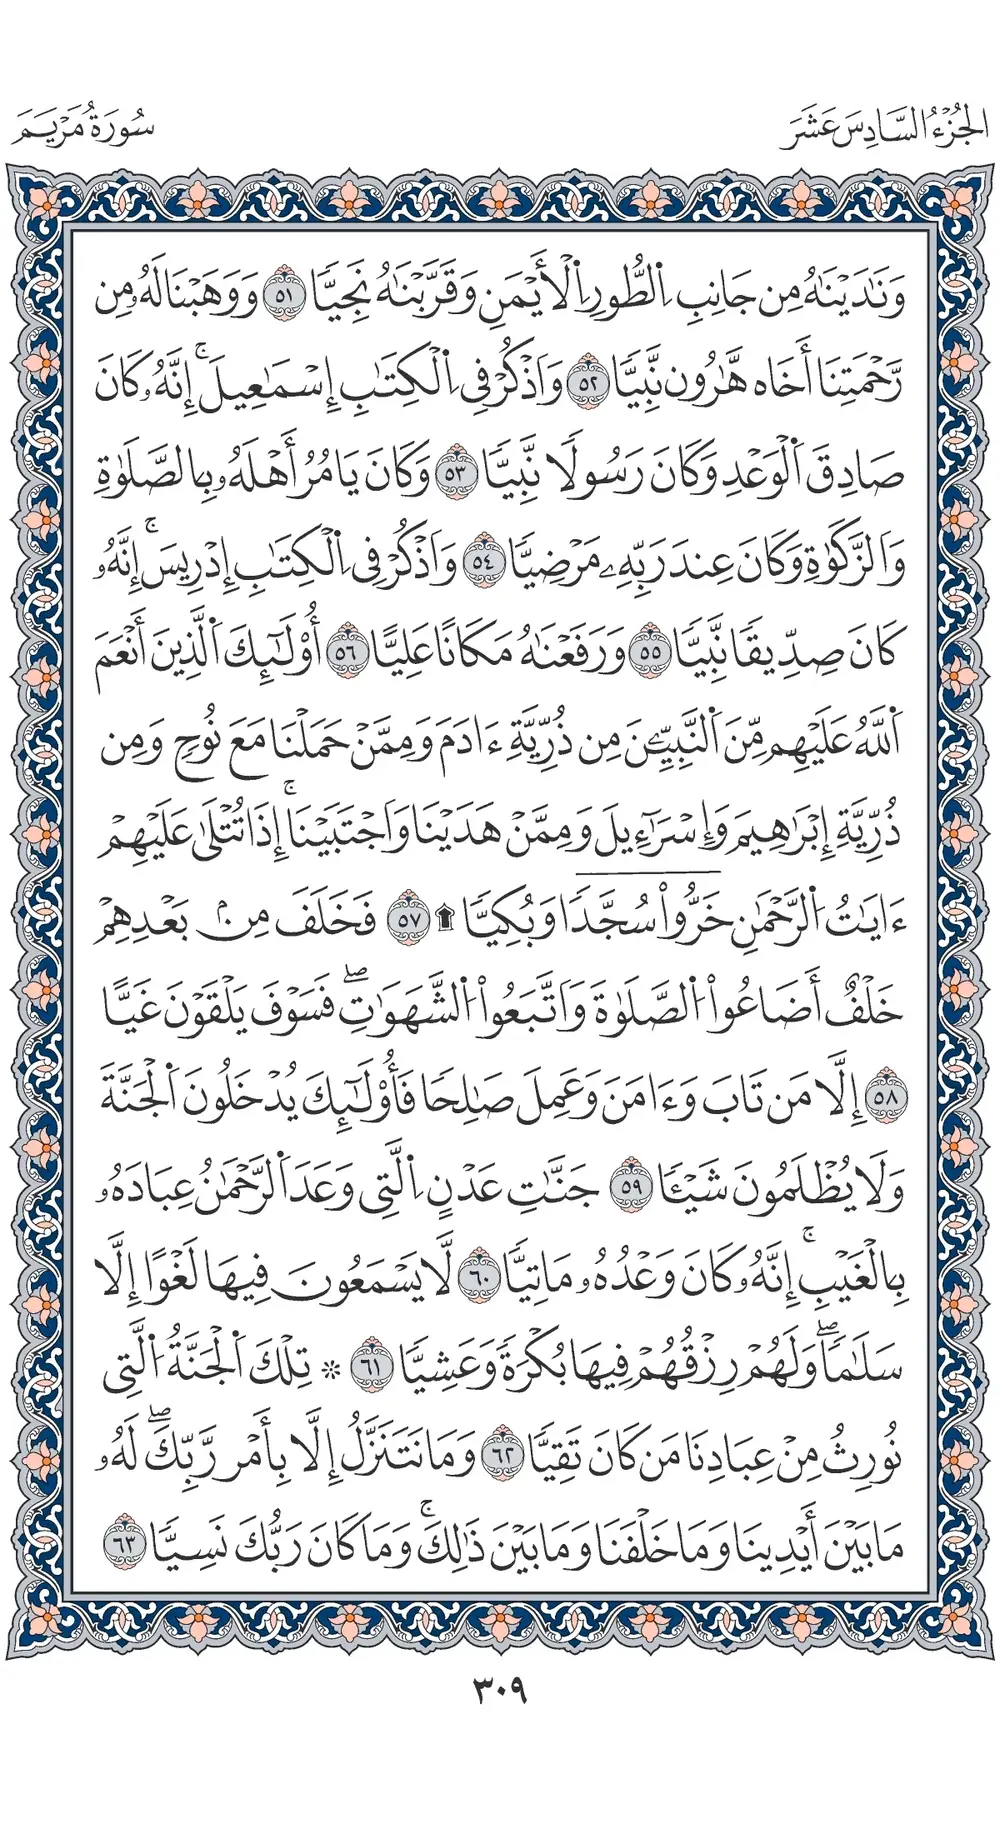 الجُزْءُ السَّادِسَ عَشَرَ
سُورَةُ مَرْيَمَ
وَنَٰدَيْنَٰهُ مِن جَانِبِ اِ۬لطُّورِ اِ۬لْأَيْمَنِ وَقَرَّبْنَٰهُ نَجِيّٗاۖ ٥١ وَوَهَبْنَا لَهُۥ مِن
رَّحْمَتِنَا أَخَاه هَّٰرُون نَّبِيّٗا ٥٢ وَاَذْكُرْ فِي اِ۬لْكِتَٰبِ إِسْمَٰعِيلَۚ إِنَّهُۥ كَانَ
صَادِقَ اَ۬لْوَعْدِ وَكَانَ رَسُولٗا نَّبِيّٗا ٥٣ وَكَانَ يَامُرُ أَهْلَهُۥ بِالصَّلَوٰةِ
وَالزَّكَوٰةِ وَكَانَ عِندَ رَبِّهِۦ مَرْضِيّٗا ٥٤ وَاَذْكُرْ فِي اِ۬لْكِتَٰبِ إِدْرِيسَۚ إِنَّهُۥ
كَانَ صِدِّيقٗا نَّبِيّٗا ٥٥ وَرَفَعْنَٰهُ مَكَانًا عَلِيًّا ٥٦ أُوْلَٰٓئِكَ اَ۬لَّذِينَ أَنْعَمَ
اَ۬للَّهُ عَلَيْهِم مِّنَ اَ۬لنَّبِيِّـۧنَ مِن ذُرِّيَّةِ ءَادَمَ وَمِمَّنْ حَمَلْنَا مَعَ نُوحٖ وَمِن
ذُرِّيَّةِ إِبْرَٰهِيمَ وَإِسْرَٰٓءِيلَ وَمِمَّنْ هَدَيْنَا وَاَجْتَبَيْنَاۚ إِذَا تُتْلَىٰ عَلَيْهِمْ
ءَايَٰتُ اُ۬لرَّحْمَٰنِ خَرُّواْ سُجَّدٗا وَبُكِيّٗا ۩ ٥٧ فَخَلَفَ مِنۢ بَعْدِهِمْ
خَلْفٌ أَضَاعُواْ اُ۬لصَّلَوٰةَ وَاَتَّبَعُواْ اُ۬لشَّهَوَٰتِۖ فَسَوْفَ يَلْقَوْنَ غَيًّا
٥٨ إِلَّا مَن تَابَ وَءَامَنَ وَعَمِلَ صَٰلِحٗا فَأُوْلَٰٓئِكَ يُدْخَلُونَ اَ۬لْجَنَّةَ
وَلَا يُظْلَمُونَ شَيْـٔٗا ٥٩ جَنَّٰتِ عَدْنٍ اِ۬لَّتِي وَعَدَ اَ۬لرَّحْمَٰنُ عِبَادَهُۥ
بِالْغَيْبِۚ إِنَّهُۥ كَانَ وَعْدُهُۥ مَاتِيّٗا ٦٠ لَّا يَسْمَعُونَ فِيهَا لَغْوًا إِلَّا
سَلَٰمٗاۖ وَلَهُمْ رِزْقُهُمْ فِيهَا بُكْرَةٗ وَعَشِيّٗا ٦١ ۞ تِلْكَ اَ۬لْجَنَّةُ اُ۬لَّتِي
نُورِثُ مِنْ عِبَادِنَا مَن كَانَ تَقِيّٗا ٦٢ وَمَا نَتَنَزَّلُ إِلَّا بِأَمْر رَّبِّكَۖ لَهُۥ
مَا بَيْنَ أَيْدِينَا وَمَا خَلْفَنَا وَمَا بَيْنَ ذَٰلِكَۚ وَمَا كَانَ رَبُّكَ نَسِيّٗا ٦٣
٣٠٩